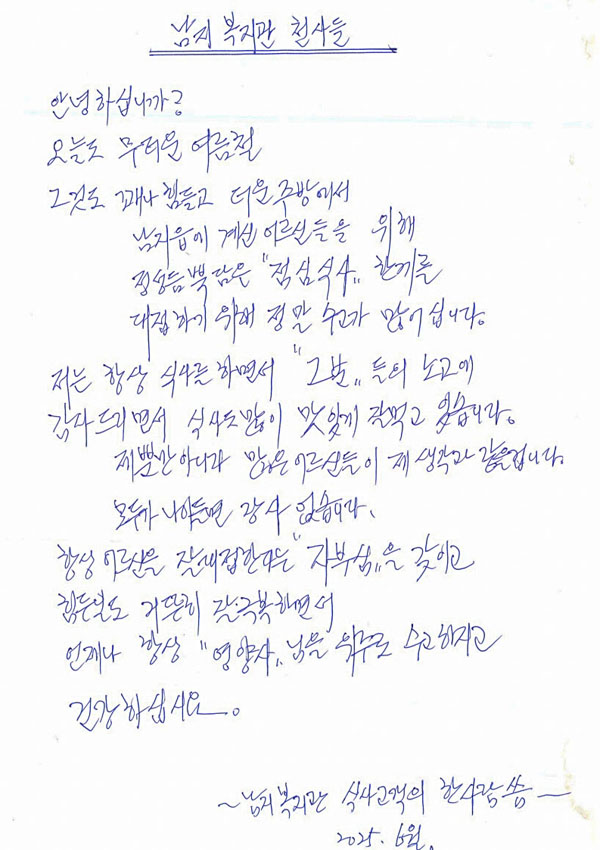 남지 복지관 천사들
안녕하십니까?
오늘도 무더운 여름철
그것도 꽤나 힘들고 더운 주방에서
남지읍에 계신 어르신들을 위해
정성듬뿍 담은 "점심식사" 한끼를
대접하기 위해 정말 수고가 많으십니다.
저는 항상 식사를 하면서 "그분"들의 노고에
감사드리면서 식사도 많이 맛있게 잘먹고 있습니다.
제뿐만 아니라 많은 어르신들이 제 생각과 같을겁니다.
모두가 나이들면 장사 없습니다.
항상 어르신을 잘대접한다는 "자부심"을 갖이고
힘든일도 거뜬히 잘극복하면서
언제나 항상 "영양사"님을 위주로 수고하시고
건강하십시요.
~남지복지관 식사고객의 한사람 씀~
2025. 6월.